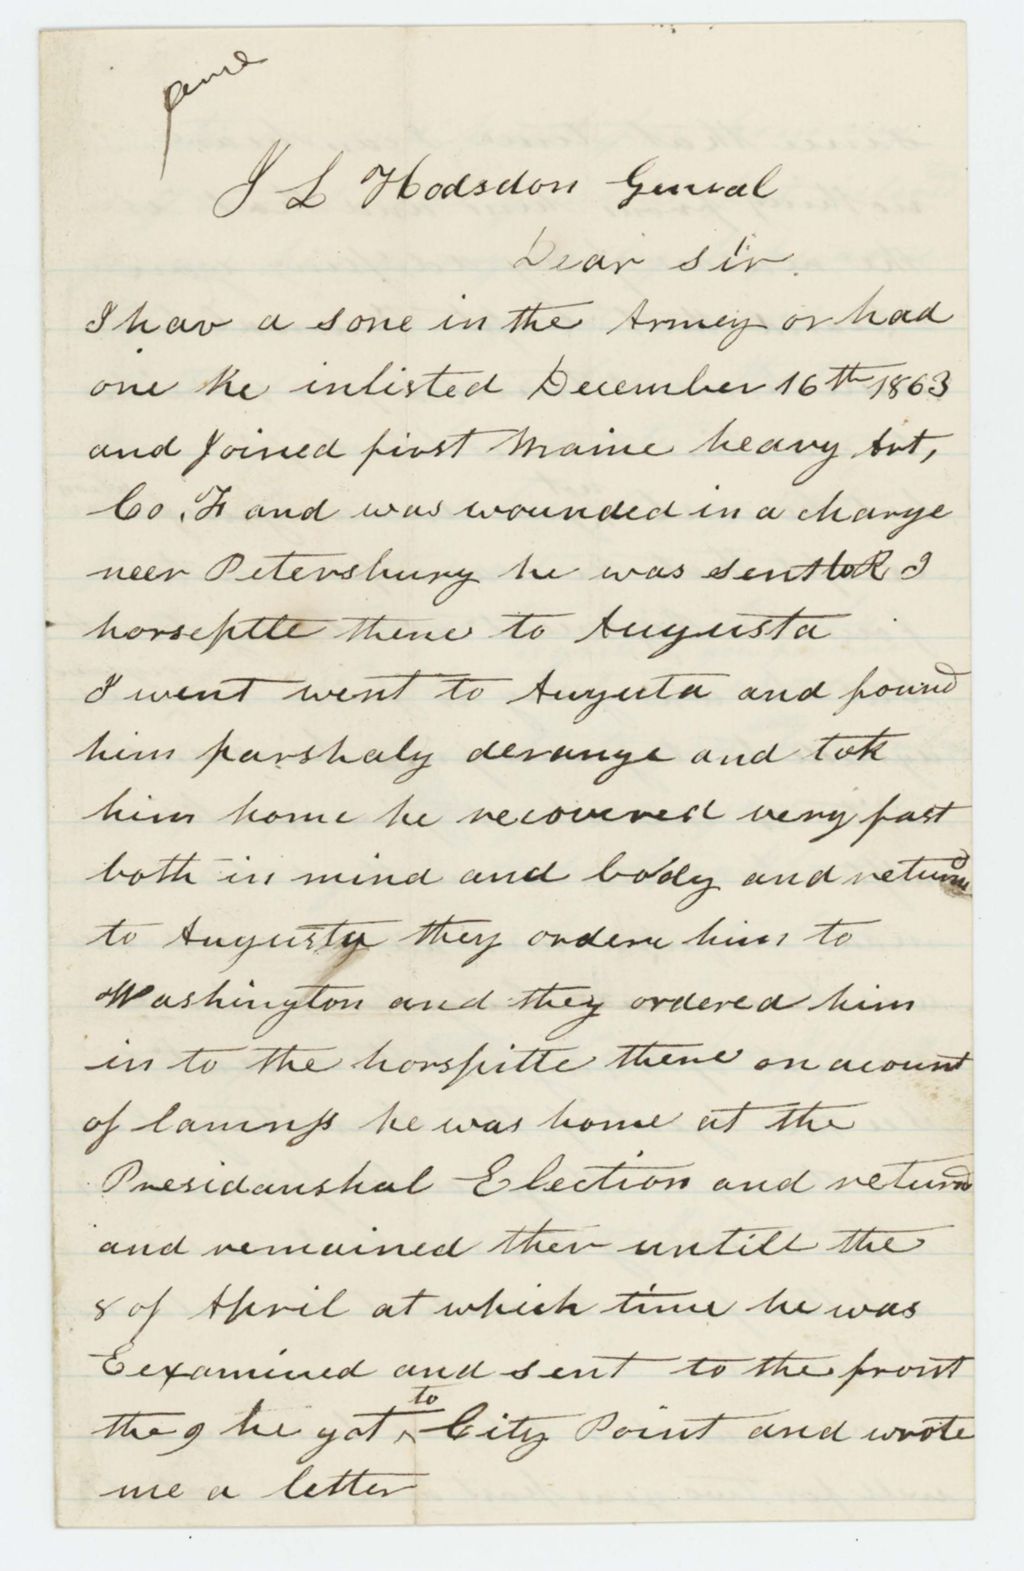 J L Hodsdon General
Dear sir.
I hav a sone in the Armey or had
one he inlisted December 16th 1863
and Joined first Maine heavy Art,
Co. F and was wounded in a charge
neer Petersburg he was sent to R I
horseptle thene to Augusta
I went went to Augusta and found
him parshaly derange and tok
him home he recovered very fast
both in mind and body and returnd
to Augusty they ordere him to
Washington and they ordered him
in to the horspitle there on acount
of lamness he was home at the
Presidanshal Election and returnd
and remained ther untill the
8 of April at which time he was
Eexamined and sent to the front
the 9 he got to City Point and wrote
me a letter